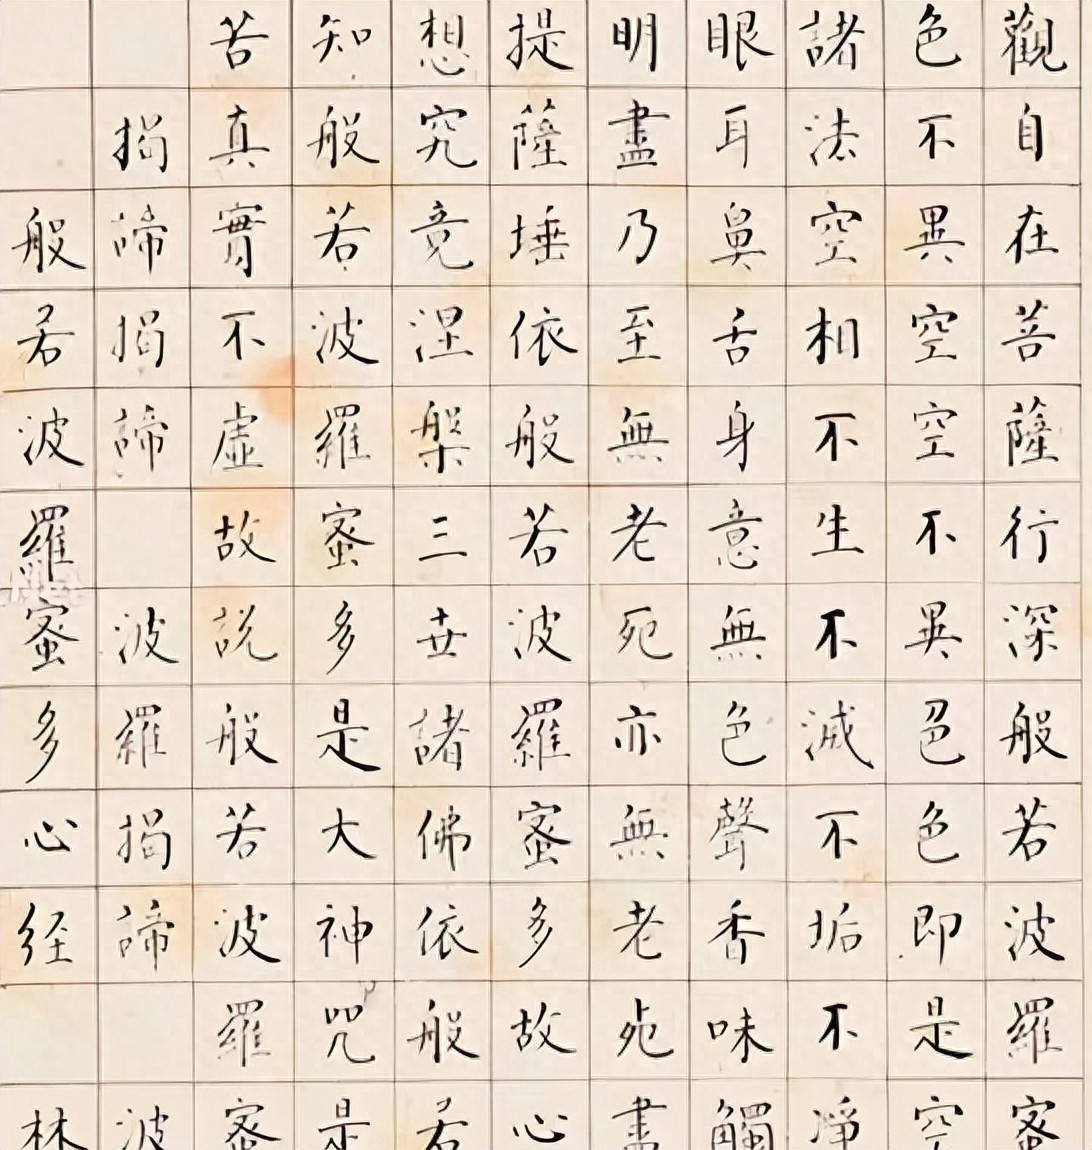 觀自在菩薩行深般若波羅蜜
色不異空空不異色色即是空
諸法空相不生不滅不垢不淨
眼耳鼻舌身意無色聲香味觸
明盡乃至無老死亦無老死盡
提薩埵依般若波羅蜜多故心
想究竟涅槃三世諸佛依般若
知般若波羅蜜多是大神咒是
苦真實不虛故說般若波羅蜜
揭諦揭諦 波羅揭諦 波
般若波羅蜜多心経 林